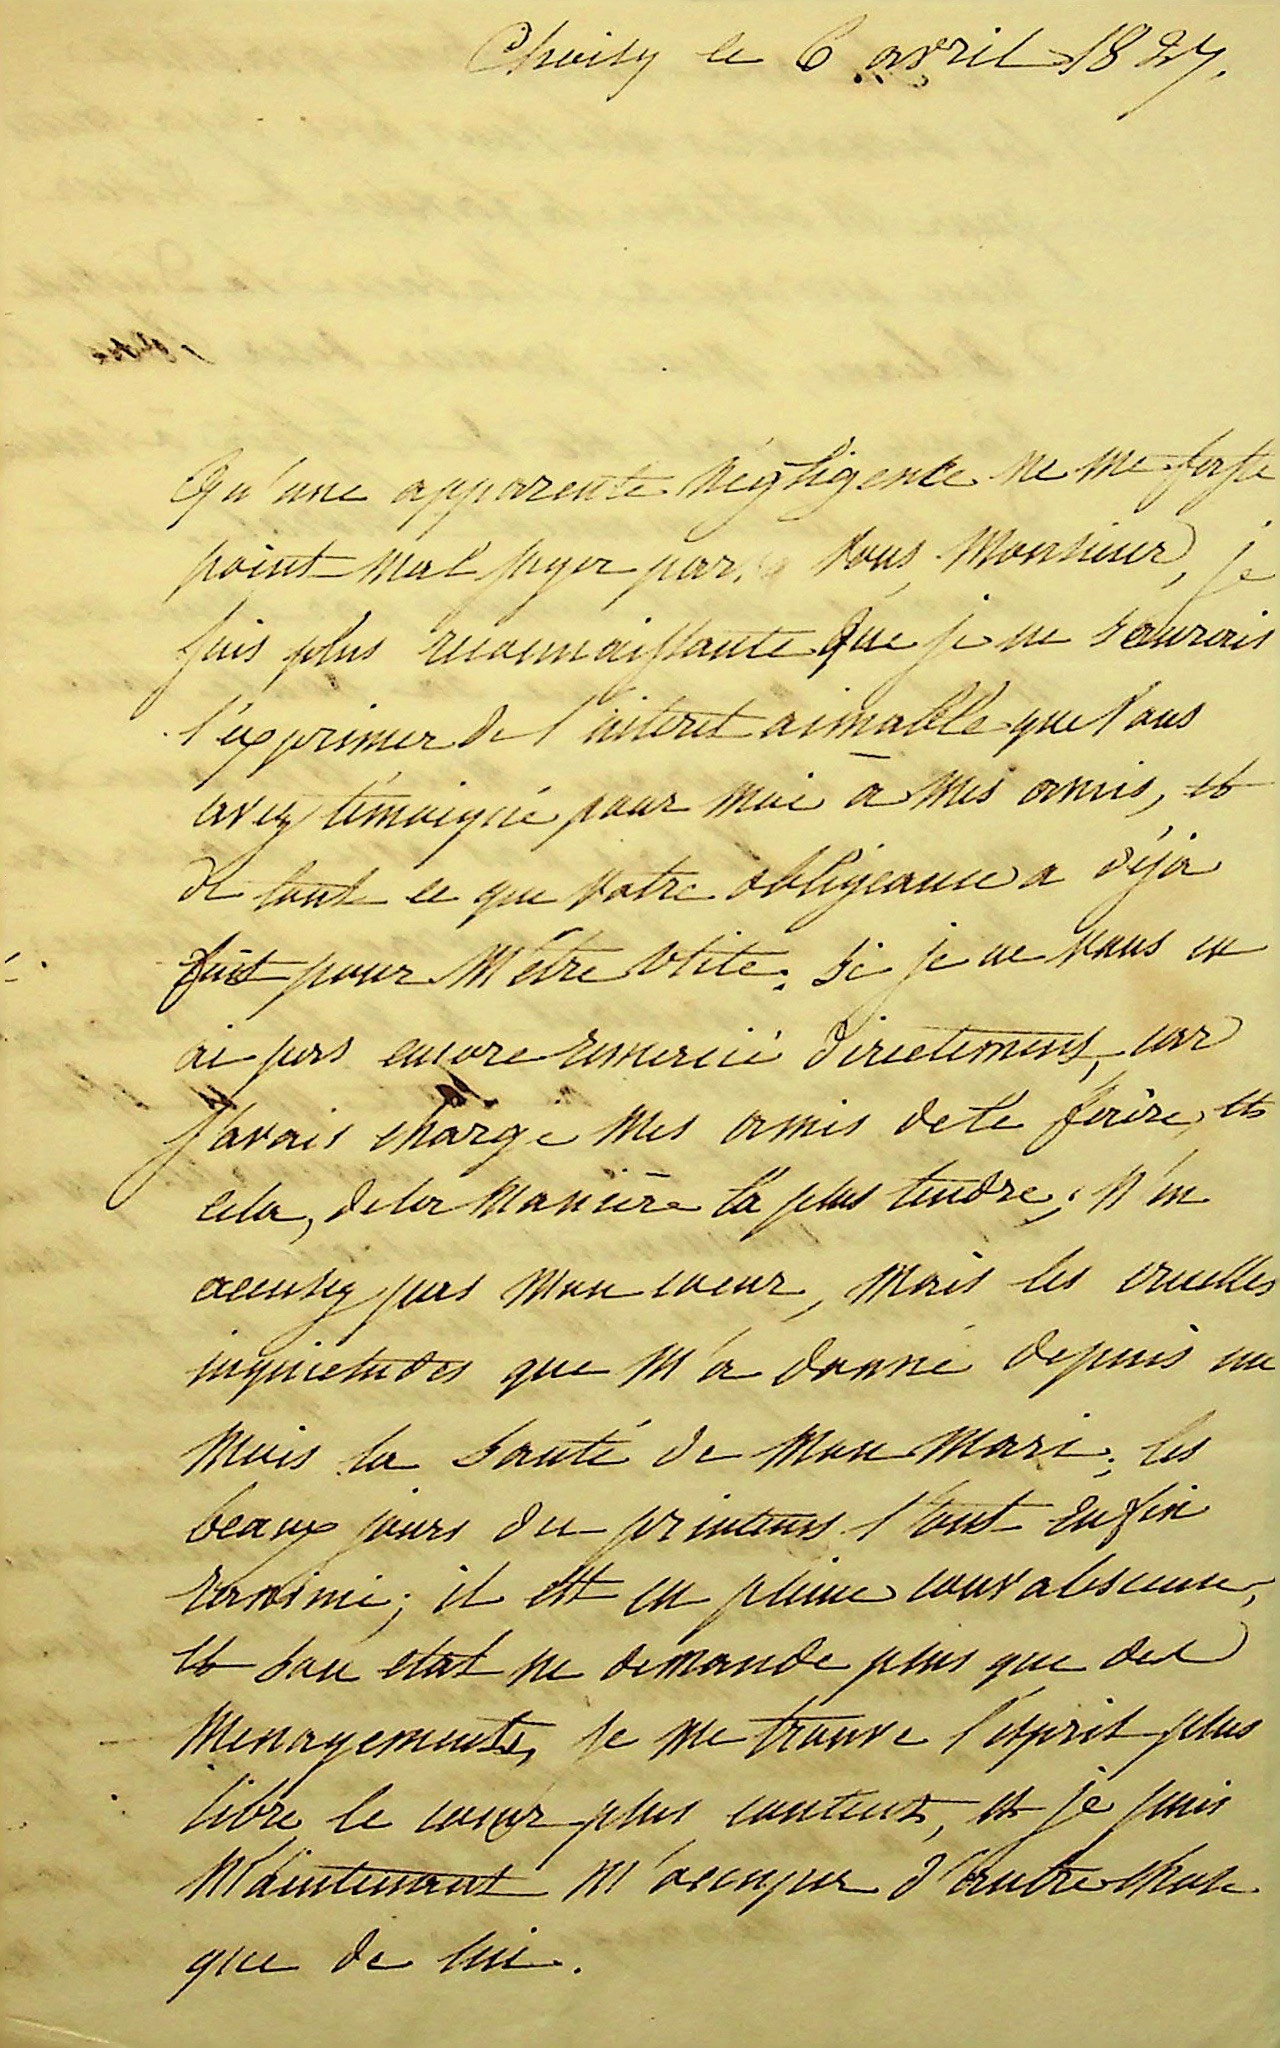 Choisy le 6 avril 1827.
Qu'une apparente négligence ne me fasse
point mal juger par vous, Monsieur, je
suis plus reconnaissante que je ne saurais
l'exprimer de l'interet aimable que vous
avez témoigné pour moi à mes amis, et
de tout ce que votre obligeance a déjà
fait pour m'être utile. Si je ne vous en
ai pas encore remercié directement, car
j'avais chargé mes amis de le faire, et
cela, de la manière la plus tendre; n'en
accusez pas mon coeur, mais les cruelles
inquietudes que m'a donné depuis un
mois la santé de mon mari; les
beaux jours du printems l'ont enfin
ranimé; il est en pleine convalescence,
et son etat ne demande plus que des
menagements, je me trouve l'esprit plus
libre le coeur plus content, et je puis
maintenant m'occuper d'autre chose
que de lui.